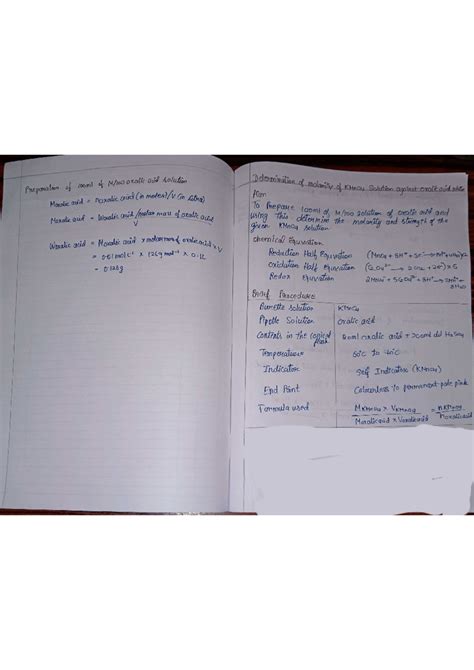 Preparation of 100ml of M/100 oxalic acid solution
Moxalic acid = noxalic acid (in moles)/V (in litres)
Moxalic acid = Woxalic acid/molar mass of oxalic acid
V
Woxalic acid = Moxalic acid x molar mass of oxalic acid x V
= 0.01 mol L⁻¹ x 126g mol⁻¹ x 0.1L
= 0.126g
Determination of molarity of KMnO4 Solution against oxalic acid
Aim
To Prepare 100ml of M/100 solution of oxalic acid and
using this determine the molarity and strength of the
given KMnO4 solution
Chemical Equation
Reduction Half Equation
Oxidation Half Equation
Redox Equation
Brief Procedure
Burette solution KMnO4
Pipette Solution Oxalic acid
Contents in the conical flask oxalic acid + dil H2SO4
Temperature 50°C to 60°C
Indicator Self Indicator (KMnO4)
End Point Colourless to permanent pale pink
Formula used MKMnO4 x VKMnO4 / Moxalic acid x Voxalic acid = nKMnO4 / noxalic acid